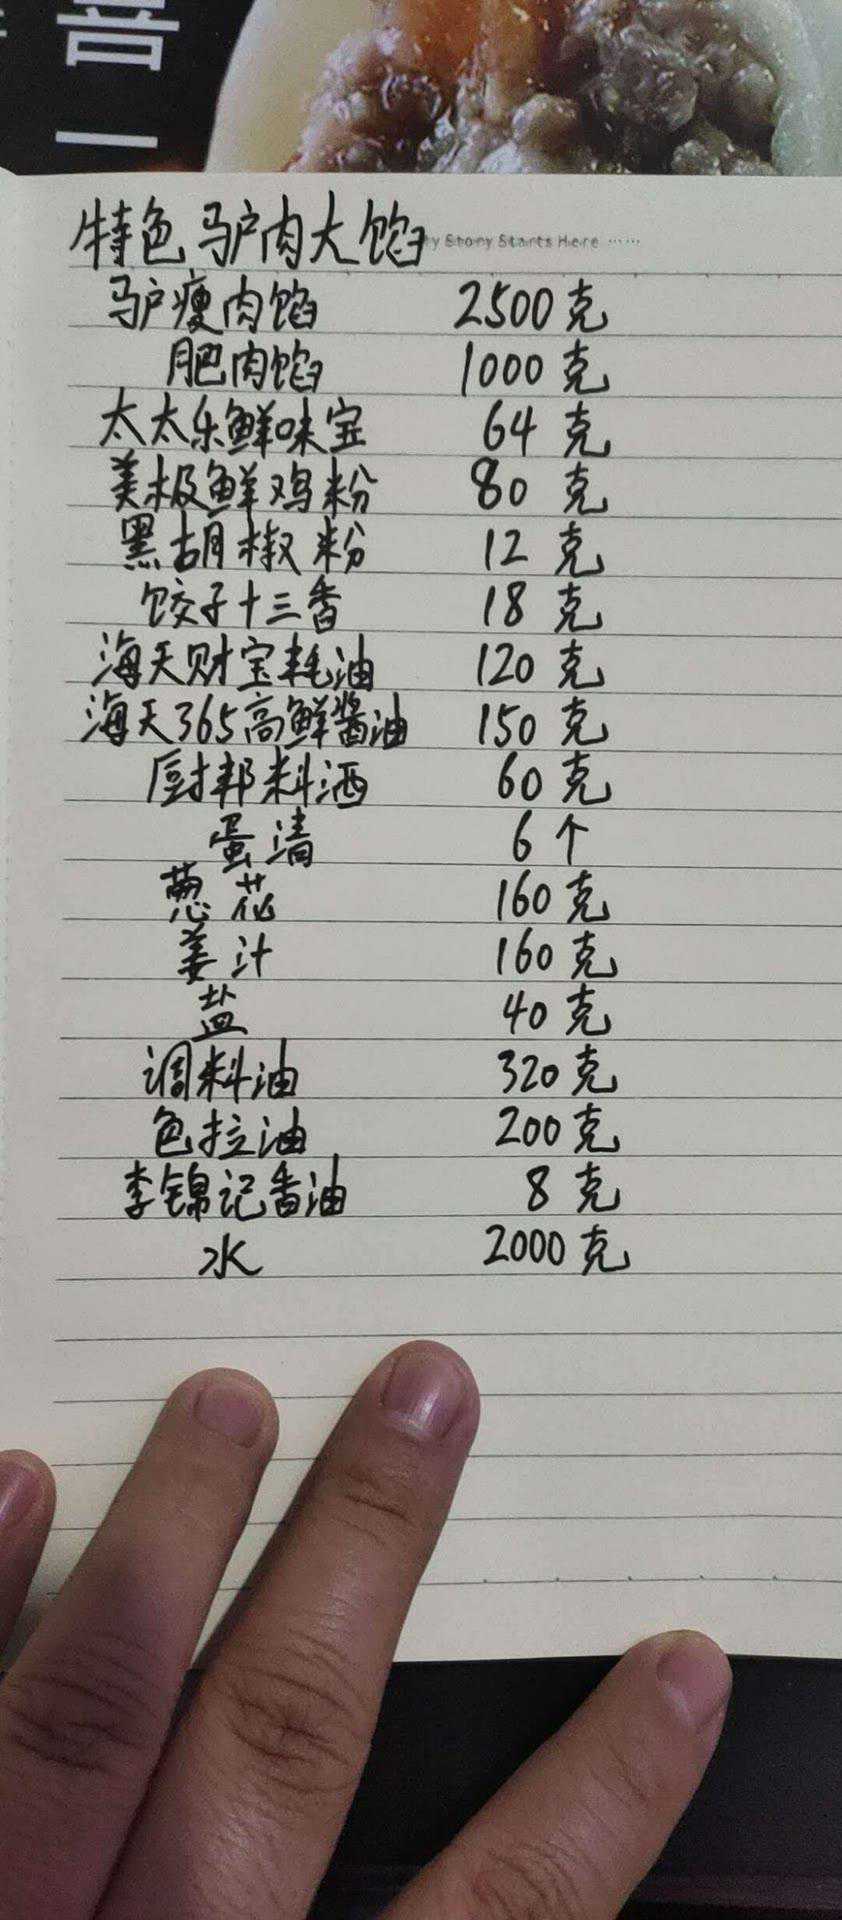 喜一
特色驴肉大馅
y Story Starts Here ······
驴瘦肉馅 2500克
肥肉馅 1000克
太太乐鲜味宝 64克
美极鲜鸡粉 80克
黑胡椒粉 12克
饺子十三香 18克
海天财宝耗油 120克
海天365高鲜酱油 150克
厨邦料酒 60克
蛋清 6个
葱花 160克
姜汁 160克
盐 40克
调料油 320克
色拉油 200克
李锦记香油 8克
水 2000克